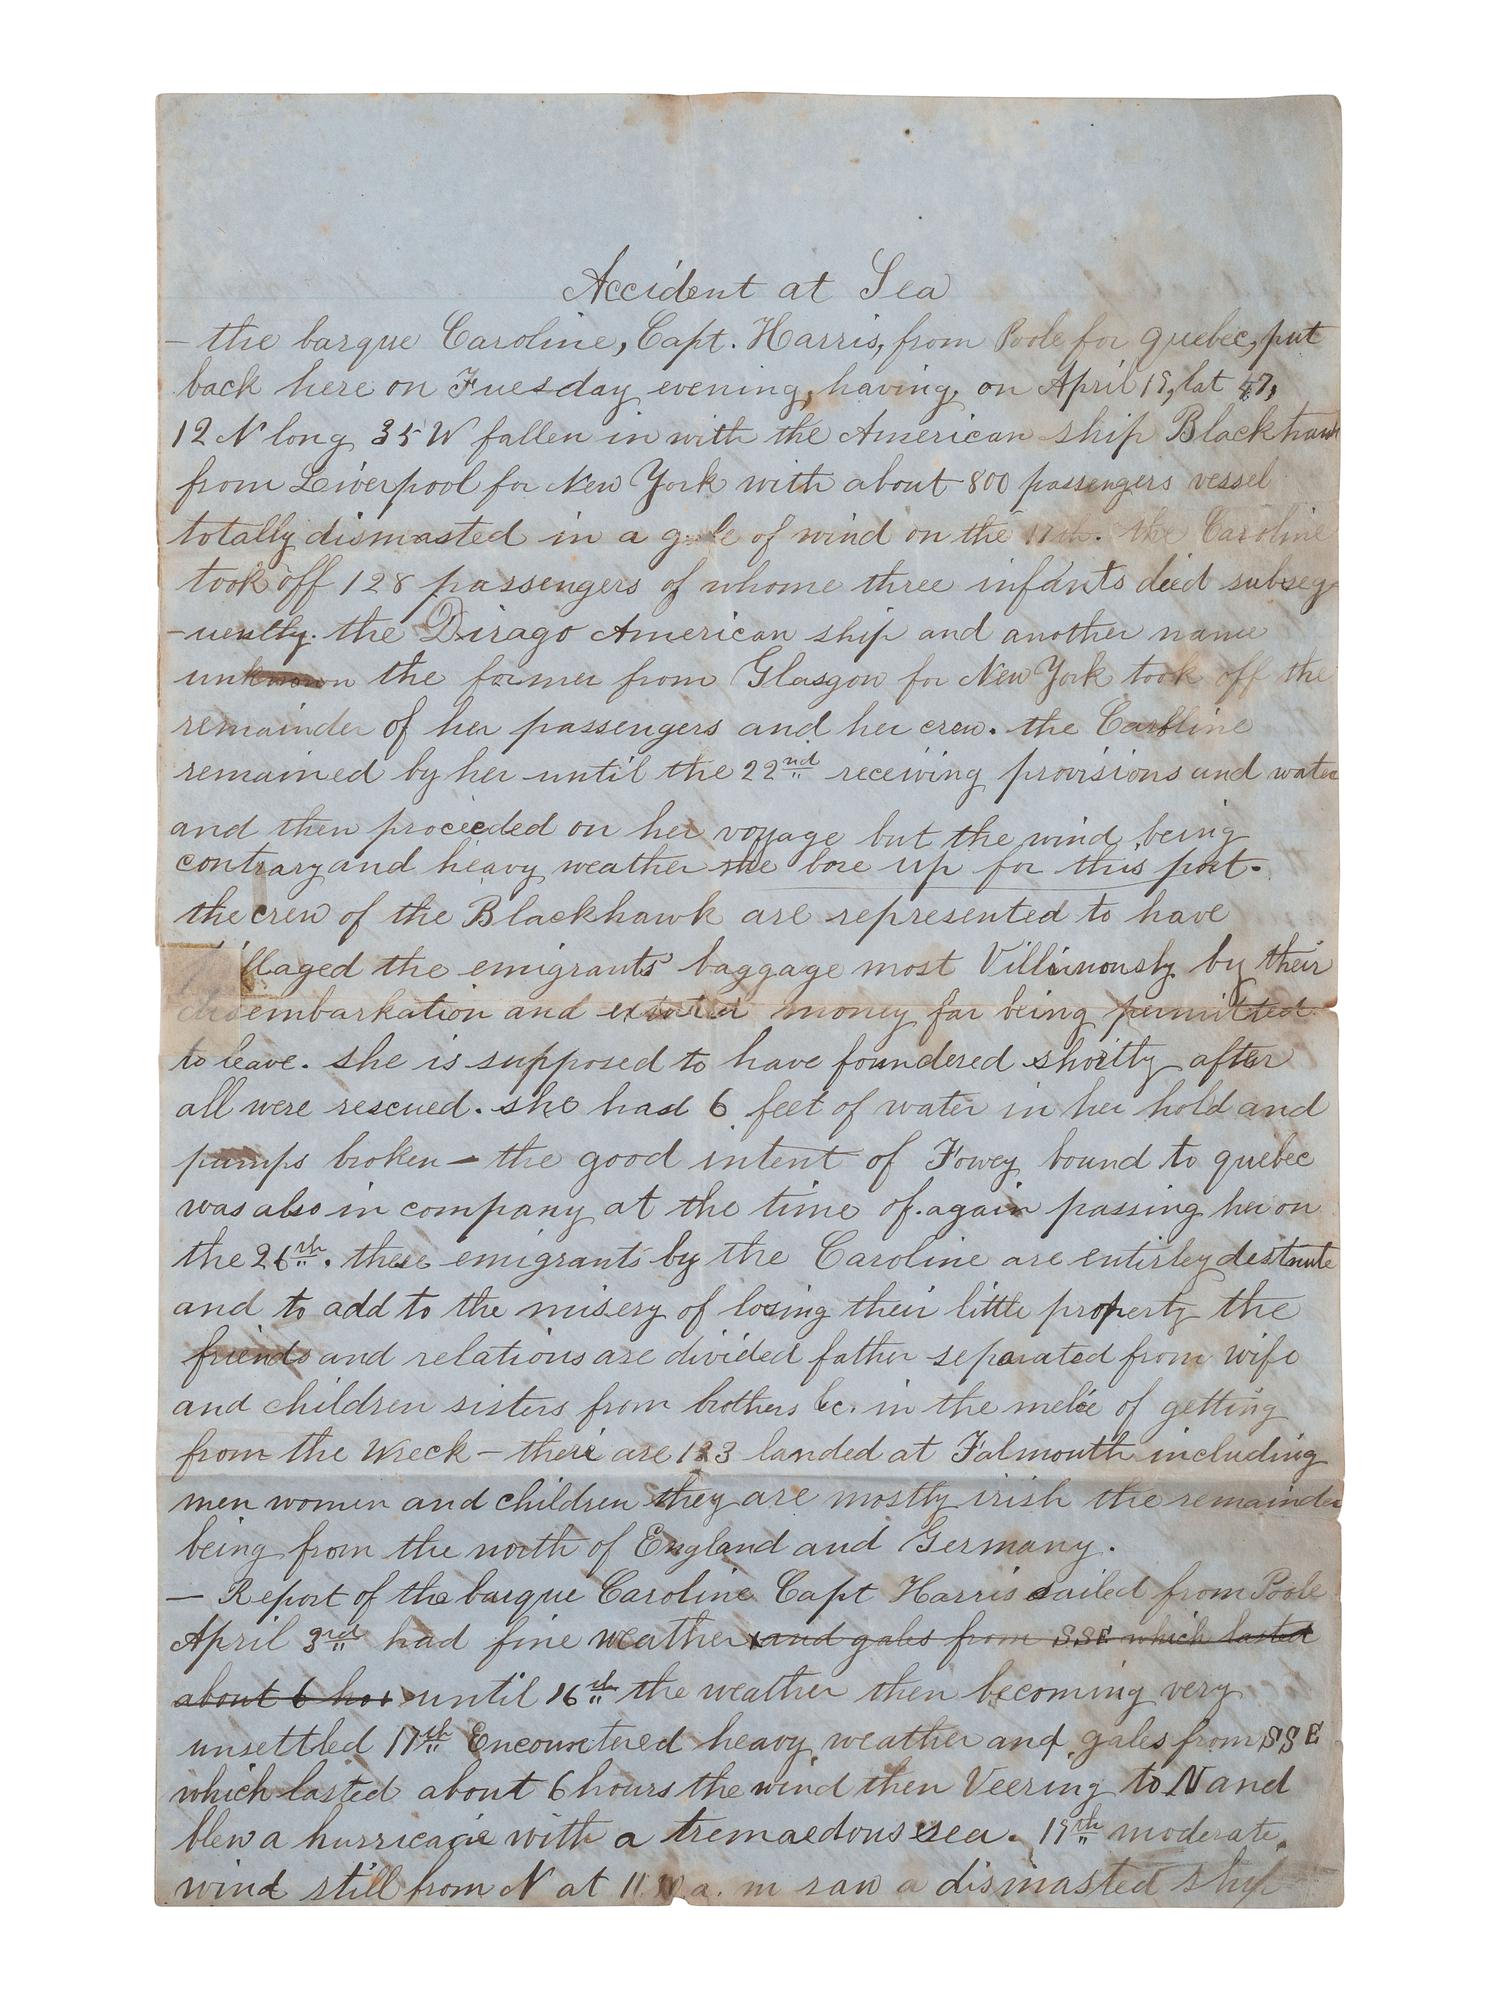 Accident at Sea
- the barque Caroline, Capt. Harris, from Poole for quebec, put
back here on Tuesday evening, having, on April 19, lat 47,
12 N long 35 W fallen in with the American ship Blackhawk
from Liverpool for New York with about 800 passengers vessel
totally dismasted in a gale of wind on the 17th. the Caroline
took off 128 passengers of whome three infants died subseq
-uently. the Dirago American ship and another name
unknown the former from Glasgow for New York took off the
remainder of her passengers and her crew. the Caroline
remained by her until the 22nd receiving provisions and water
and then proceeded on her voyage but the wind being
contrary and heavy weather she bore up for this port.
the crew of the Blackhawk are represented to have
illaged the emigrants baggage most Villianously by their
disembarkation and extorted money for being permitted
to leave. she is supposed to have foundered shortly after
all were rescued. she had 6 feet of water in her hold and
pumps broken — the good intent of Fowey bound to quebec
was also in company at the time of again passing her on
the 26th. these emigrants by the Caroline are entirley destitute
and to add to the misery of losing their little property the
friends and relations are divided father separated from wife
and children sisters from brothers &c. in the melee of getting
from the Wreck - there are 123 landed at Falmouth including
men women and children they are mostly irish the remainder
being from the north of England and Germany.
— Report of the barque Caroline Capt Harris sailed from Poole
April 3rd had fine weather and gales from SSE which lasted
about 6 hos until 16th the weather then becoming very
unsettled 17th Encountered heavy weather and gales from SSE
which lasted about 6 hours the wind then Veering to N and
blew a hurricane with a tremaedous sea. 19th moderate,
wind still from N at 11.30 a. m saw a dismasted ship